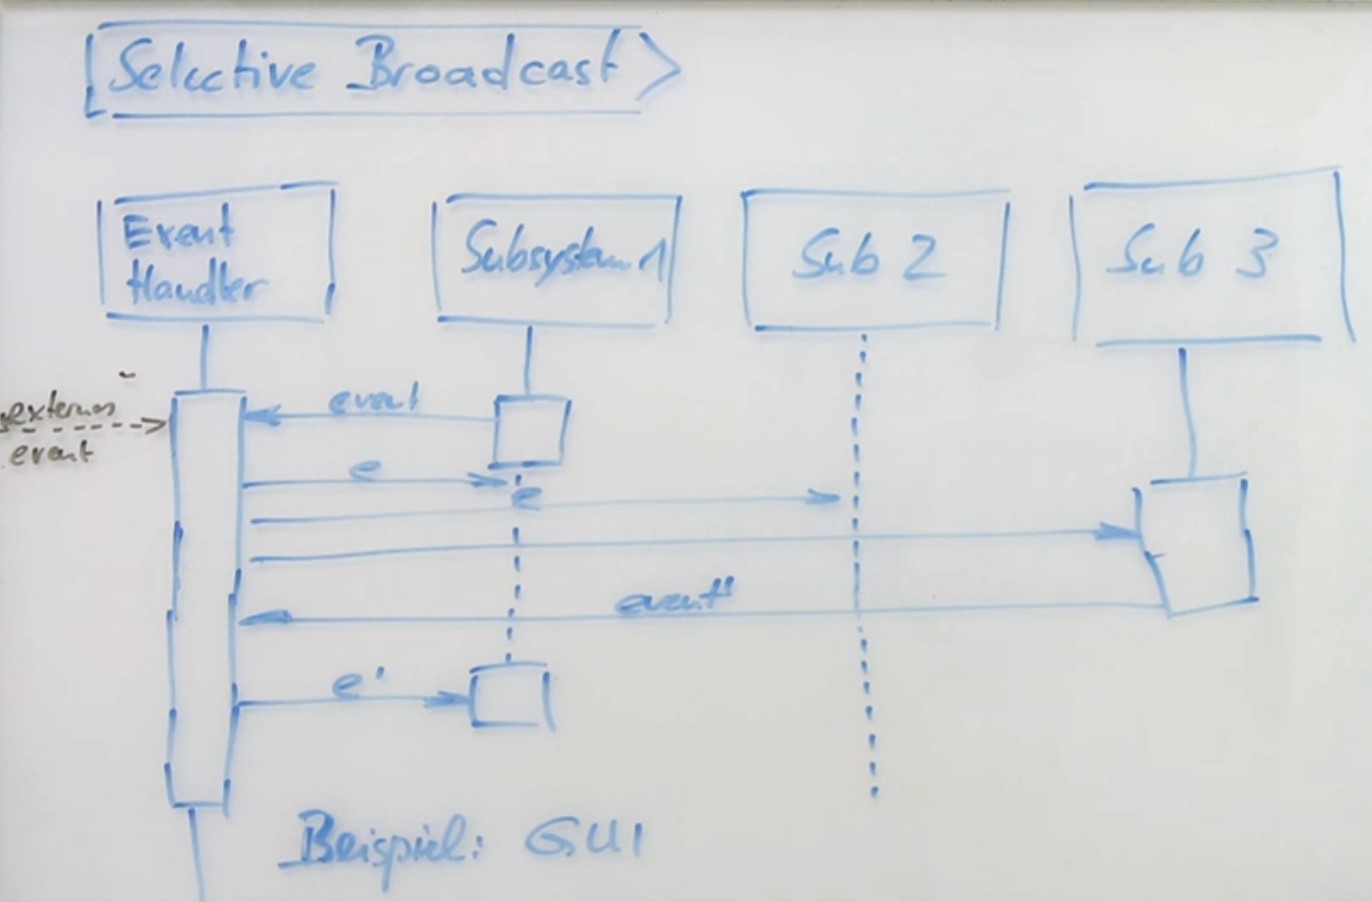 Selective Broadcast
Event
Handler
Subsystem 1
Sub 2
Sub 3
externes
event
event
e
e
event'
e'
Beispiel: GUI